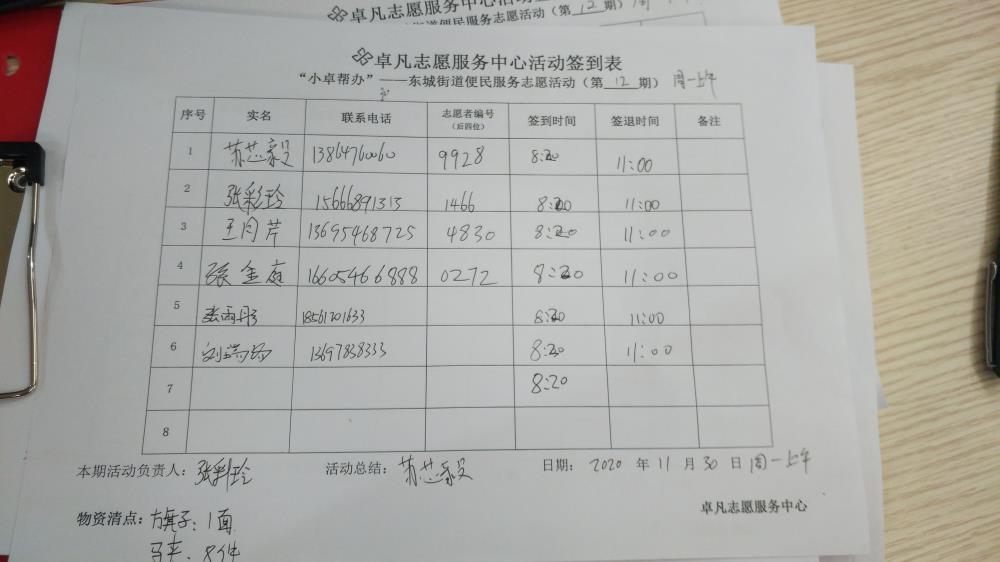 卓凡志愿服务中心活动签
街道便民服务志愿活动（第 12 期）周一
卓凡志愿服务中心活动签到表
“小卓帮办”——东城街道便民服务志愿活动（第 12 期）周一上午
序号 实名 联系电话 志愿者编号（后四位） 签到时间 签退时间 备注
1 苏芯毅 13864760060 9928 8:20 11:00
2 张彩玲 15666891313 1466 8:20 11:00
3 王月芹 13695468725 4830 8:20 11:00
4 张金庭 16605466888 0272 8:20 11:00
5 张雨丹 18561201633 8:20 11:00
6 刘 13697838333 8:20 11:00
7 8:20
8
本期活动负责人：张彩玲 活动总结：苏芯毅 日期：2020 年 11 月 30 日 周一上午
卓凡志愿服务中心
物资清点：旗子：1面
马夹：8件